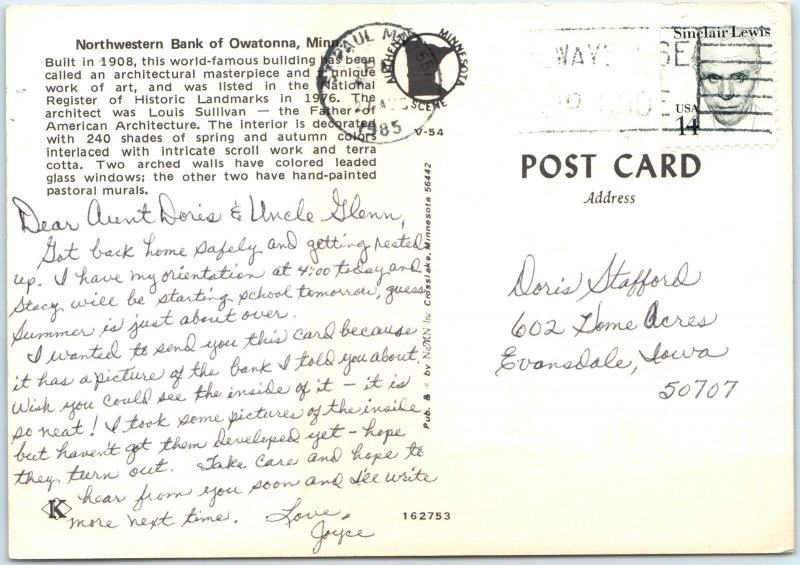 Northwestern Bank of Owatonna, Minn.
Built in 1908, this world-famous building has been
called an architectural masterpiece and a unique
work of art, and was listed in the National
Register of Historic Landmarks in 1976. The
architect was Louis Sullivan — the Father of
American Architecture. The interior is decorated
with 240 shades of spring and autumn colors
interlaced with intricate scroll work and terra
cotta. Two arched walls have colored leaded
glass windows; the other two have hand-painted
pastoral murals.
Dear Aunt Doris & Uncle Glenn,
Got back home safely and getting rested
up. I have my orientation at 4:00 today and
Stacy will be starting school tomorrow, guess
summer is just about over.
I wanted to send you this card because
it has a picture of the bank I told you about.
Wish you could see the inside of it – it is
so neat! I took some pictures of the inside
but haven't got them developed yet – hope
they turn out. Take care and hope to
hear from you soon and I'll write
more next time. Love,
Joyce
K
162753
Pub. & by Inc Crosslake, Minnesota 56442
V-54
MINNESOTA
SCENE
PAUL
1985
Sinclair Lewis
USA
14
POST CARD
Address
Doris Stafford
602 Home Acres
Evansdale, Iowa
50707